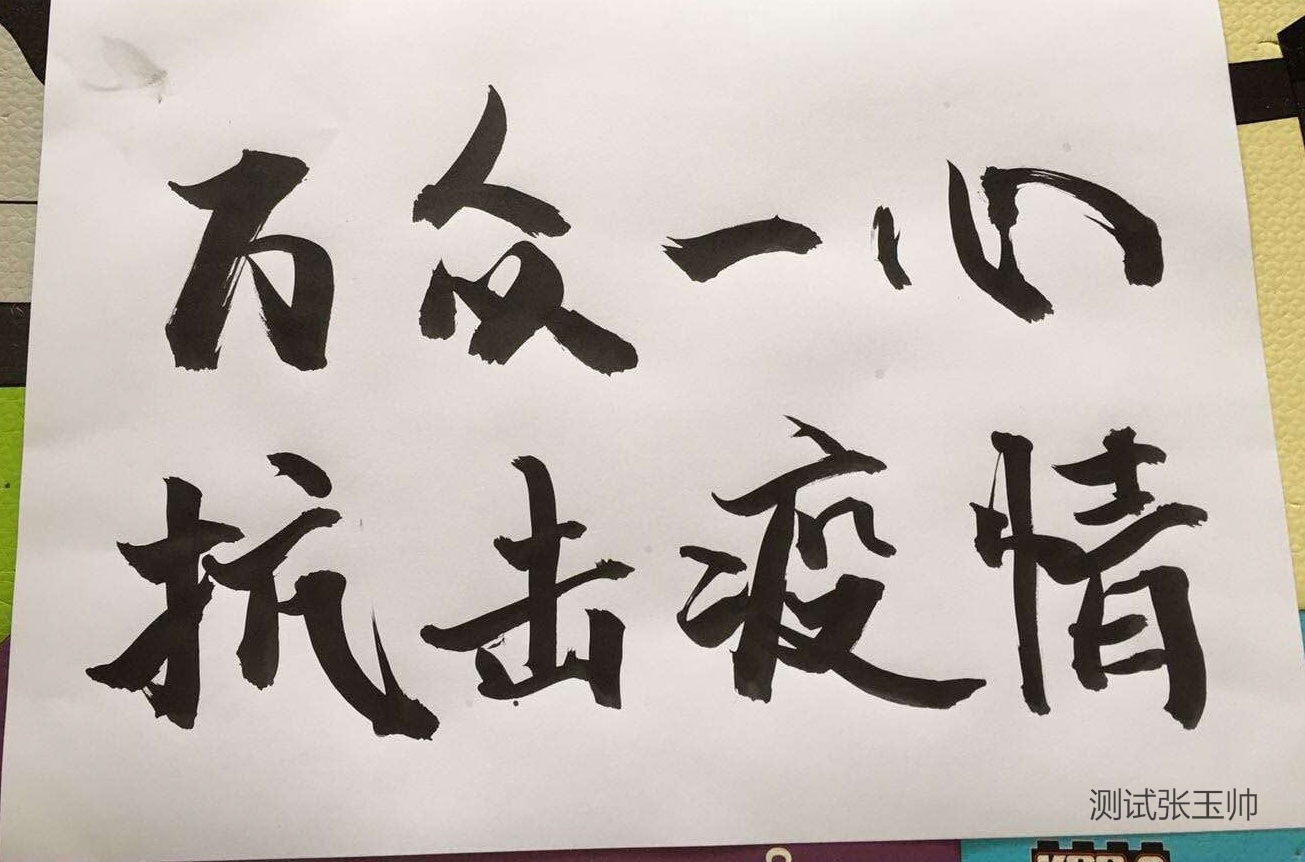 万众一心
抗击疫情
测试张玉帅